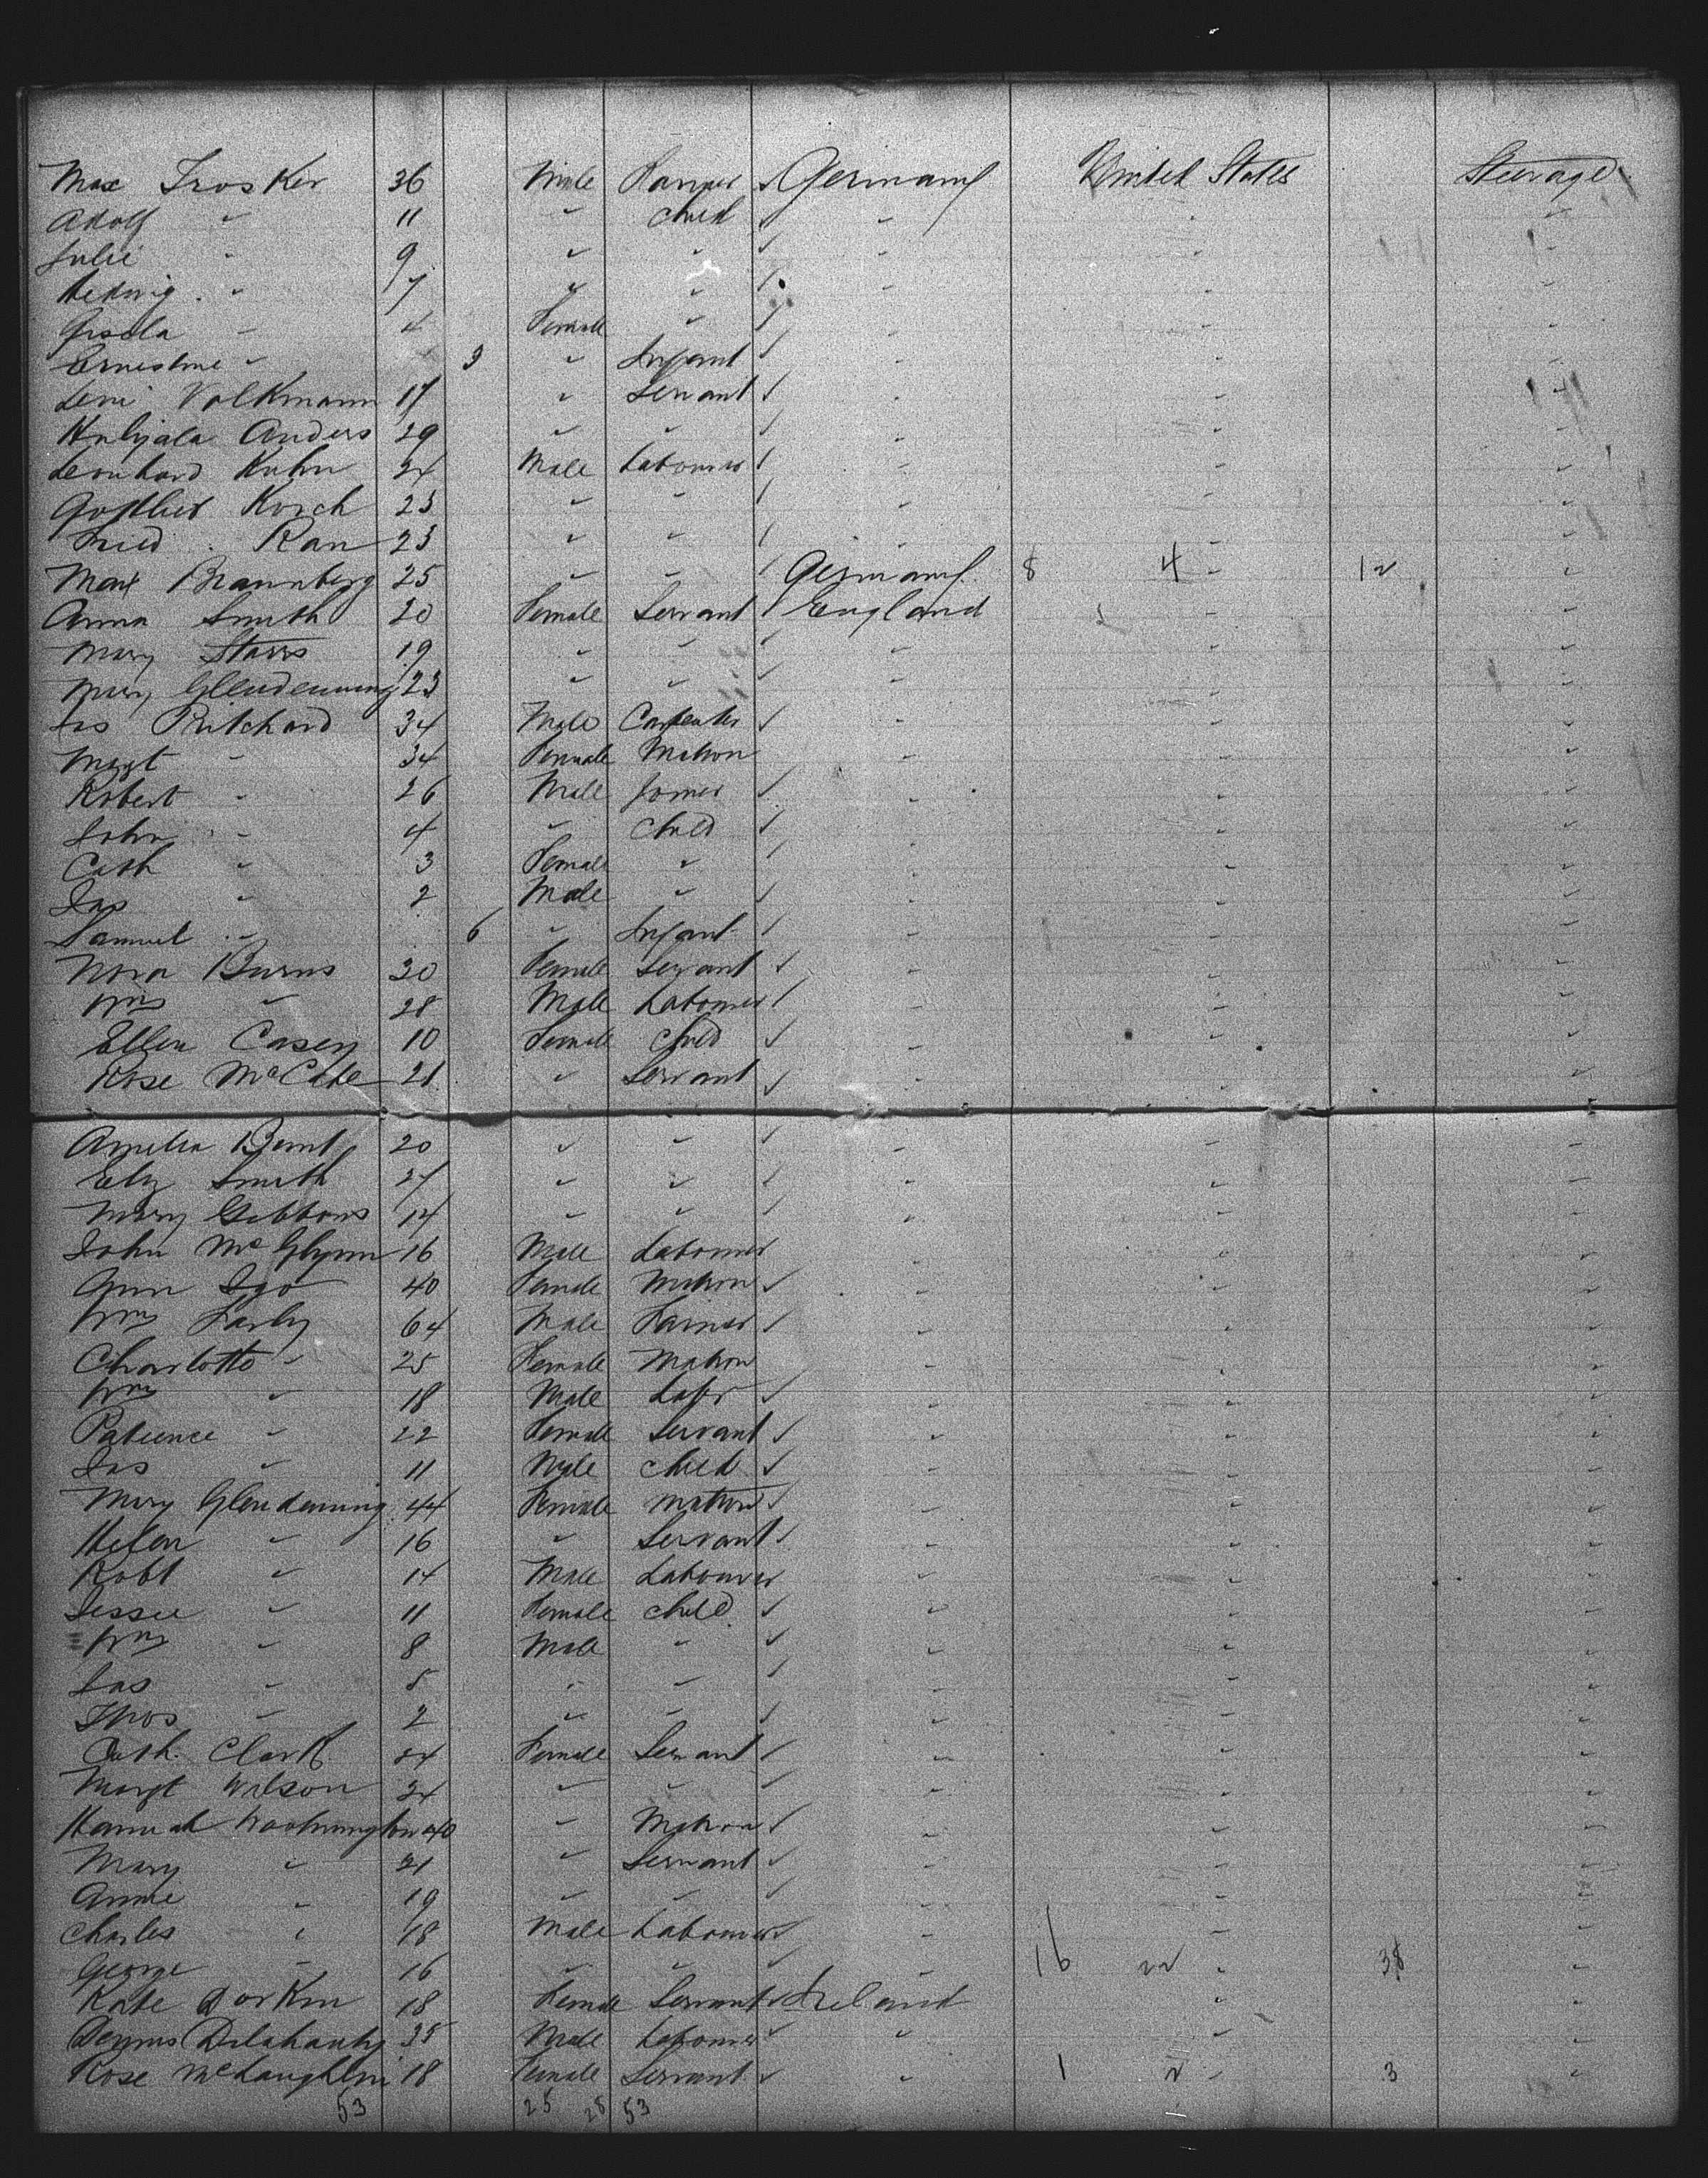 Max Troskev 36 Male Farmer ✓ Germany United States Steerage
Adolf " 11 " Child ✓ " " "
Julie " 9 " " ✓ " " "
Hedwig " 7 " " ✓ " " "
Gisela " 4 Female " ✓ " " "
Ernestine " 3 " Infant ✓ " " "
Leni Volkmann 17 " Servant ✓ " " "
Anders 29 " " ✓ " " "
Leonhard Kuhn 24 Male Labourer ✓ " " "
Gottlieb Korch 23 " " ✓ " " "
Fried. Rau 23 " " ✓ " " "
Max Braunberg 25 " " ✓ Germany 8 4 " 12 "
Anna Smith 20 Female Servant ✓ England " "
Mary Starrs 19 " " ✓ " " "
Mary Glendenning 23 " " ✓ " " "
Jas Pritchard 34 Male Carpenter ✓ " " "
Margt " 34 Female Matron " " "
Robert " 26 Male Joiner ✓ " " "
John " 4 " Child ✓ " " "
Cath " 3 Female " ✓ " "
Jas " 2 Male " ✓ " " "
Samuel " 6 " Infant ✓ " " "
Nora Burns 20 Female Servant ✓ " " "
Wm " 28 Male Labourer ✓ " " "
Ellen Casey 10 Female Child ✓ " " "
Rose McCabe 21 " Servant ✓ " " "
Amelia 20 " " ✓ " " "
Eliz Smith 27 " " ✓ " " "
Mary Gibbons 14 " " ✓ " " "
John McGlynn 16 Male Labourer " " "
Ann Igo 40 Female Matron ✓ " " "
Wm 64 Male Farmer ✓ " " "
Charlotte " 25 Female Matron " " "
Wm " 18 Male Labr ✓ " " "
Patience " 22 Female Servant ✓ " " "
Jas " 11 Male Child ✓ " " "
Mary Glendenning 44 Female Matron ✓ " " "
Helen " 16 " Servant ✓ " " "
Robt " 14 Male Labourer " " "
Jessie " 11 Female Child ✓ " " "
Wm " 8 Male " ✓ " " "
Jas " 5 " " ✓ " " "
Thos " 2 " " ✓ " " "
Cath. Clark 24 Female Servant ✓ " " "
Margt Wilson 24 " " ✓ " " "
Hannah Washington 40 " Matron ✓ " " "
Mary " 21 " Servant ✓ " " "
Annie " 19 " " ✓ " " "
Charles " 18 Male Labourer ✓ " " "
George " 16 " " ✓ " 16 22 " 38 "
Kate Dorkin 18 Female Servant ✓ Ireland " "
Dennis Delahanty 35 Male Labourer ✓ " " "
Rose McLaughlin 18 Female Servant ✓ " 1 2 " 3 "
53 25 28 53